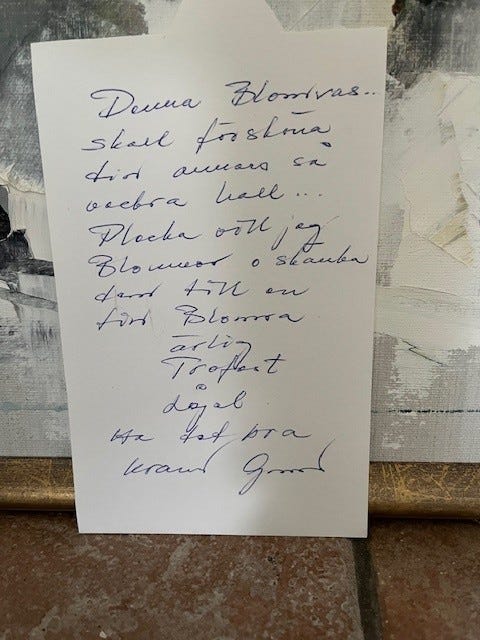 Denna Blomvas..
skall försköna
din annars så
vackra hall...
Plocka vill jag
Blommor o skänka
dem till en
fin Blomma
ärlig
Trofast
Lojal
Ha det bra
kram